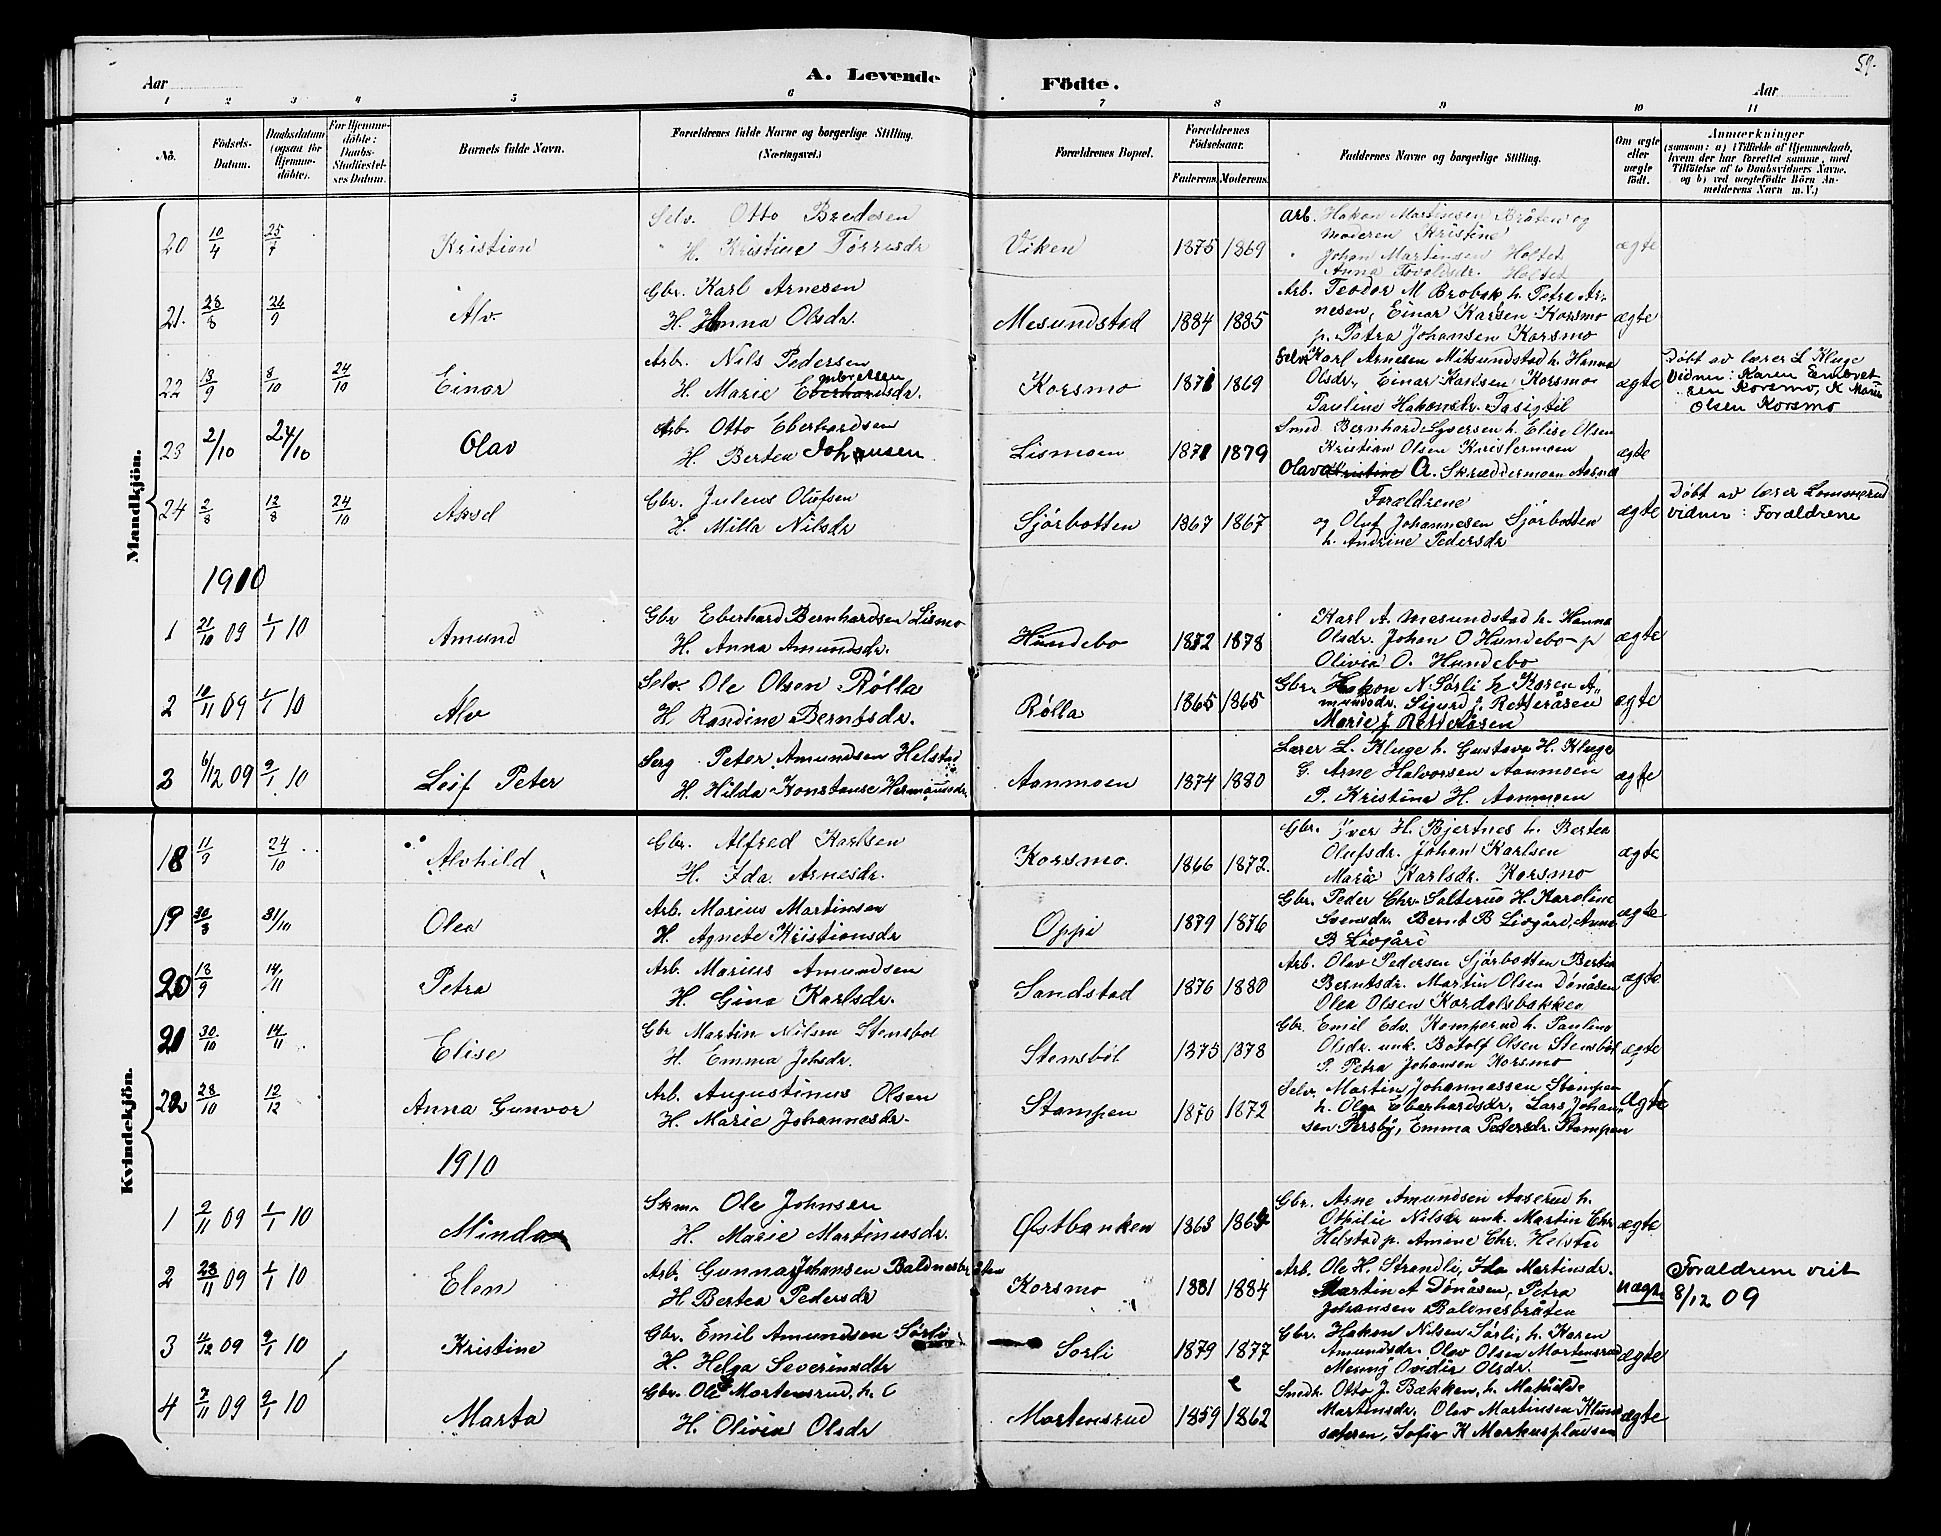 59.
A. Levende Födte.
Aar
Aar
1 2 3 4 5 6 7 8 9 10 11
No.
Födsels-Datum.
Daabsdatum (ogsaa for Hjemme-döbte).
For Hjemme-döbte: Daabs-Stadfæstel-ses Datum.
Barnets fulde Navn.
Forældrenes fulde Navne og borgerlige Stilling. (Næringsvei.)
Forældrenes Bopæl.
Forældrenes Födselsaar.
Faderens. Moderens.
Faddernes Navne og borgerlige Stilling.
Om ægte eller uægte födt.
Anmærkninger
(saasom: a) i Tilfælde af Hjemmedaab, hvem der har forrettet samme, med Tilföielse af to Daabsvidners Navne. og b) ved uægtefödte Börn Anmelderens Navn m. V.)
Mandkjön.
20 10/4 25/7 Kristian
Selv. Otto Bredesen
H. Kristine Torrisdr
Viken 1875 1869
Arb. Hakon Martinsen Bråten og
Moderen Kristine
Johan Martinsen Holtet
Anna Tovoldsdr. Holtet
ægte
21. 28/8 26/9 Alv.
Gbr. Karl Arnesen
H. Anna Olsdr.
Mesundstad 1884 1885
Arb. Teodor M Brobak h. Petra Ar-
nesen, Einar Karsen Korsmo
p. Petra Johansen Korsmo
ægte
22 13/9 8/10 24/10 Einar
Arb. Nils Pedersen
H. Marie Embretsen
Korsmo 1871 1869
Selv Karl Arnesen Mitsundstad h. Hanna
Olsdr., Einar Karlsen Korsmo
Pauline Hakonsdr.
ægte
Döbt av lærer L Kluge
Vidner: Karen Embret
sen Korsmo, K Marie
Olsen Korsmo
23 2/10 24/10 Olav
Arb. Otto Eberhardsen
H. Bertea Johansen
Lismoen 1871 1879
Smed Bernhard Syversen h. Elise Olsen
Kristian Olsen Kristiermoen
Olava Kristine A. Skræddermoen
ægte
24 2/8 12/8 24/10 Aksel
Gbr. Julius Olufsen
H. Milla Nilsdr
Sjørbotten 1867 1867
Foraldrene
og Oluf Johannesen Sjørbotten
h. Andrine Pedersdr
ægte
Döbt av lærer Lommerud
vidner: Foraldrene
1910
1 21/10 09 1/1 10 Amund
Gbr Eberhard Bernhardsen Lismo
H. Anna Amundsdr.
Hundebo 1872 1878
Karl A Mesundstad h. Hanna
Olsdr. Johan O Hundebo p
Olivia O. Hundebo
ægte
2 10/11 09 1/1 10 Alv
Selv. Ole Olsen Rølla
H Randine Berntsdr.
Rølla 1865 1865
Gbr. Hakon N Sørli h Karen A-
mundsdr. Sigurd J. Retteråsen
Marie J Retteråsen
ægte
3 6/12 09 9/1 10 Leif Peter
Serg Peter Amundsen Helstad
H. Hilda Konstanse Hermansdr.
Aanmoen 1874 1880
Lærer L. Kluge h. Gustava H. Kluge
G. Arne Halvorsen Aanmoen
P. Kristine H. Aanmoen
ægte
Kvindekjön.
18 11/9 24/10 Alvhild
Gbr. Alfred Karlsen
H. Ida Arnesdr.
Korsmo. 1866 1872.
Gbr. Iver H. Bjertnes h. Bertea
Olufsdr. Johan Karlsen
Maria Karlsdr. Korsmo
ægte
19 30/8 31/10 Olea
Arb. Marius Martinsen
H. Agnete Kristiansdr
Oppi 1879 1876
Gbr. Peder Chr. Salterud H. Karoline
Svensdr. Bernt B Livgård, Anne
B Livgård
ægte
20 18/9 14/11 Petra
Arb. Marius Amundsen
H. Gina Karlsdr.
Sandstad 1876 1880
Arb. Olav Pedersen Sjørbotten Bertea
Berntsdr. Martin Olsen Dönåsen
Olea Olsen Kordalsbakken
ægte
21 30/10 14/11 Elise
Gbr Martin Nilsen Stensböl
H. Emma Johsdr.
Stensböl 1875 1878
Gbr. Emil Edv. Kamperud h. Pauline
Olsdr. unk. Botolf Olsen Stensböl
P. Petra Johansen Korsmo
ægte
22 28/10 12/12 Anna Gunvor
Arb. Augustinus Olsen
H. Marie Johannesdr.
Stampen 1870 1872
Selv. Martin Johannessen Stampen
h. Olea Eberhardsdr. Lars Johan-
sen Persby, Emma Pedersdr. Stampen
Ægte
1910
1 2/11 09 1/1 10 Minda
Skm. Ole Johnsen
H. Marie Martinusdr.
Østbanken 1863 1864
Gbr. Arne Amundsen Aaserud h.
Othilie Nilsdr unk. Martin Chr
Helstad p. Amine Chr. Helstad
ægte
2 23/11 09 1/1 10 Elen
Arb. Gunnar Johansen Baldnesbråten
H Bertea Pedersdr
Korsmo 1881 1884
Arb. Ole H. Strandli, Ida Martinsdr.
Martin A Dönåsen, Petra
Johansen Baldnesbråten
uægte
Foraldrene viet
8/12 09
3 11/12 09 9/1 10 Kristine
Gbr. Emil Amundsen Sørli
H. Helga Severinsdtr
Sorli 1879 1877
Gbr. Hakon Nilsen Sørli, h. Karen
Amundsdr. Olav Olsen Mortensrud
Ovidia Olsdr.
ægte
4 7/11 09 9/1 10 Marta
Gbr. Ole Mortensrud, h.
H. Olivia Olsdr
Mortensrud 1859 1862
Snedk. Otto J. Bækken, h. Mathilde
Martinsdr., Olav Martinsen Klund
sæteren, Sofie K Markusplassen
ægte